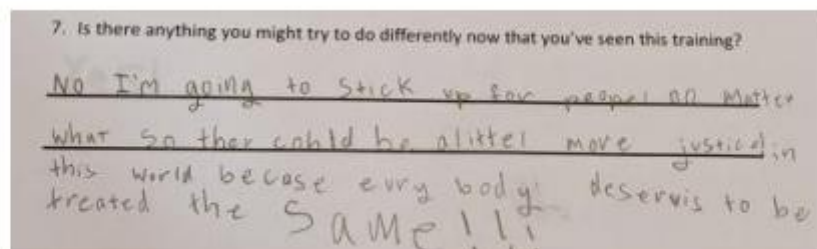 7. Is there anything you might try to do differently now that you've seen this training?
No I'm going to stick up for peopel no matter
what so ther cohld be alittel more justice in
this world becase evry body deservis to be
treated the Same!!!